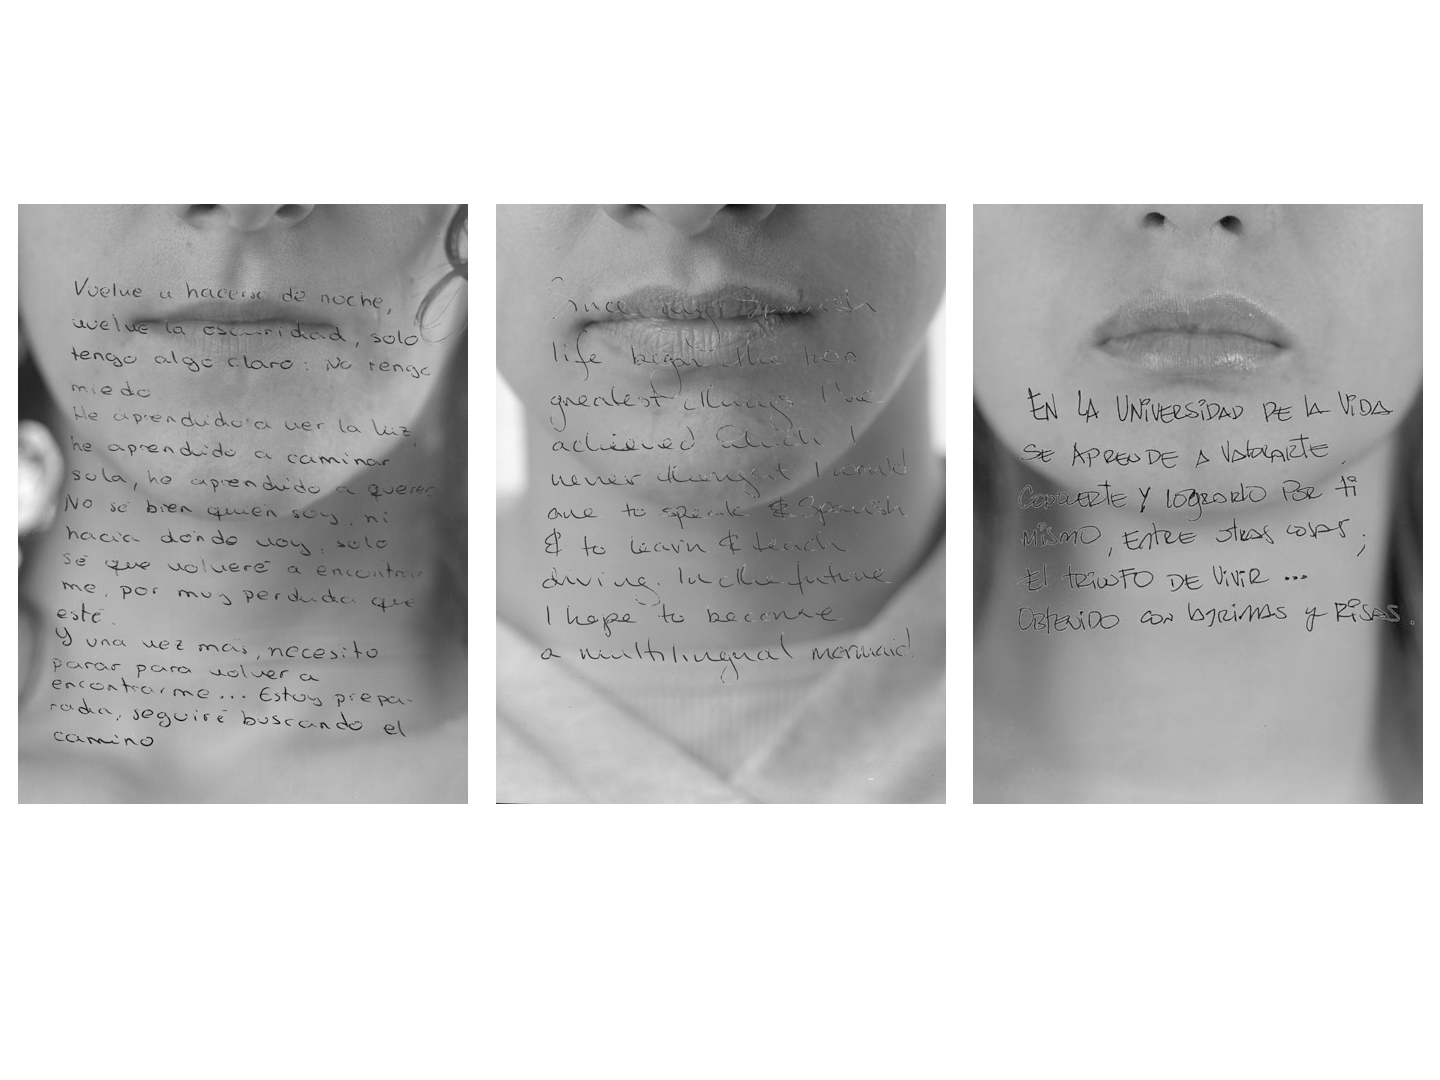 Vuelve a hacerse de noche,
vuelve la oscuridad, solo
tengo algo claro: No tengo
miedo
He aprendido a ver la luz,
he aprendido a caminar
sola, he aprendido a querer
No sé bien quién soy, ni
hacia dónde voy, solo
sé que volveré a encontrar
me, por muy perdida que
esté.
Y una vez más, necesito
parar para volver a
encontrarme... Estoy prepa-
rada, seguiré buscando el
camino
Since my Spanish
life began the two
greatest things I've
achieved which I
never thought I would
are to speak Spanish
& to learn & teach
diving. In the future
I hope to become
a multilingual mermaid!
EN LA UNIVERSIDAD DE LA VIDA
SE APRENDE A VALORARTE,
Y LOGRARLO POR ti
MISMO, ENTRE OTRAS COSAS;
El TRIUNFO DE VIVIR ...
OBTENIDO CON LÁGRIMAS y RISAS.